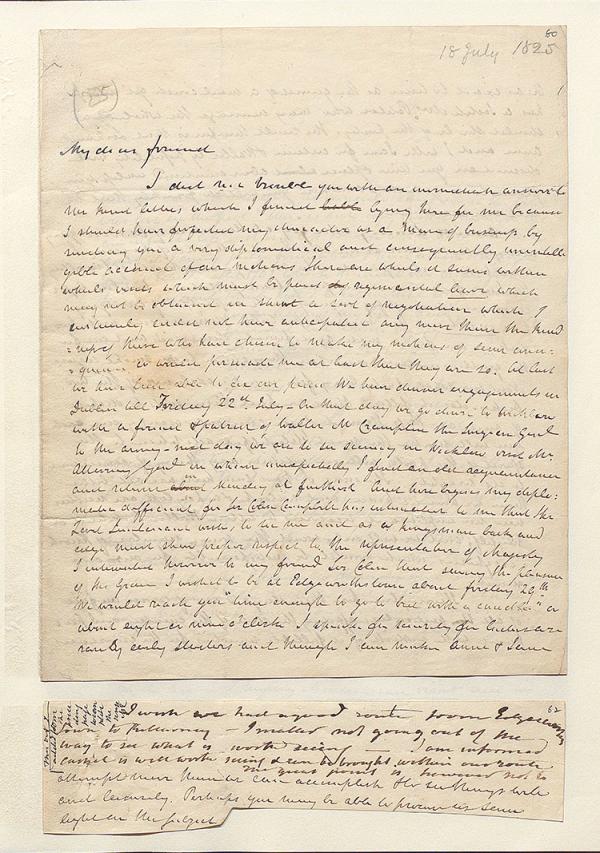 80
18 July 1825
My dear friend
I did not trouble you with an immediate answer to
the kind letter which I found lying here for me because
I should have forfeited my character as a man of business by
rendering you a very diplomatical and consequently unintelli
gible account of our motions. There are wheels it seems within
wheels which must be paid regimental which
may not be obtained in short a sort of negotiation which I
certainly could not have anticipated any more than the kind
-ness of those who have chosen to make my motions of some conse-
-quence or would persuade me at least that they are so. At last
we have been able to fix our plan. We have dinner engagements in
Dublin till Friday 22d. July - On that day we go down to Wicklow
with a friend & patron of Walter Mr Crampton the Surgeon Genl
to the army - next day we are to see scenery in Wicklow visit Mr.
Attorney Genl in whom unexpectedly I find an old acquaintance
and return on Monday at furthest And here begins my diplo-
matic difficulties for Sir Colin Campbell has intimated to me that the
Lord Lieutenant wishes to see me and as a kingsman back and
edge must show proper respect to the representative of Majesty
I intimated however to my friend Sir Colin that saving the pleasure
of his Grace I wished to be at Edgeworthstown about friday 29th
We would reach you "time enough to go to bed with a candle" or
about eight or nine o'clock. I speak for security for Ladies are
rarely early starters and though I can make Anne & Jane
82
I wish we had a good route from Edgeworths
town to Killarney - I mind not going out of the
way to see what is worth seeing - I am informed
Cashel is well worth seeing & can be brought within our route
The great point is however not to
attempt more than we can accomplish & to see things well
and leisurely. Perhaps you may be able to procure us some
light on the subject